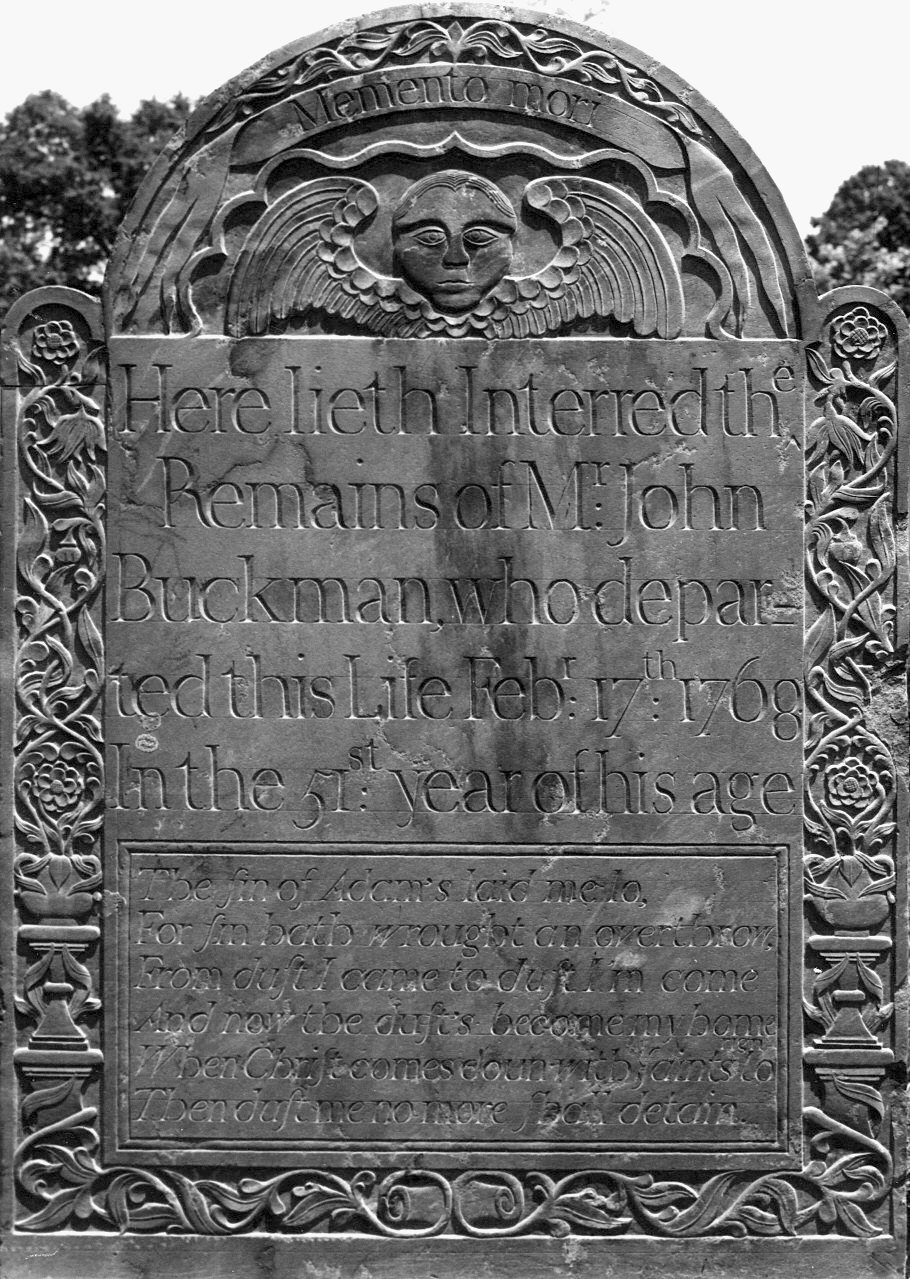 Memento mori
Here lieth Interred the
Remains of Mr: John
Buckman, who depar-
ted this Life Febr: 17th: 1768
In the 51st: year of his age
The ſin of Adam's laid me lo,
For ſin hath wrought an overthrow,
From duſt I came to duſt I'm come
And now the duſt's become my home
When Chriſt comes doun with ſaints to
Then duſt me no more ſhall detain.